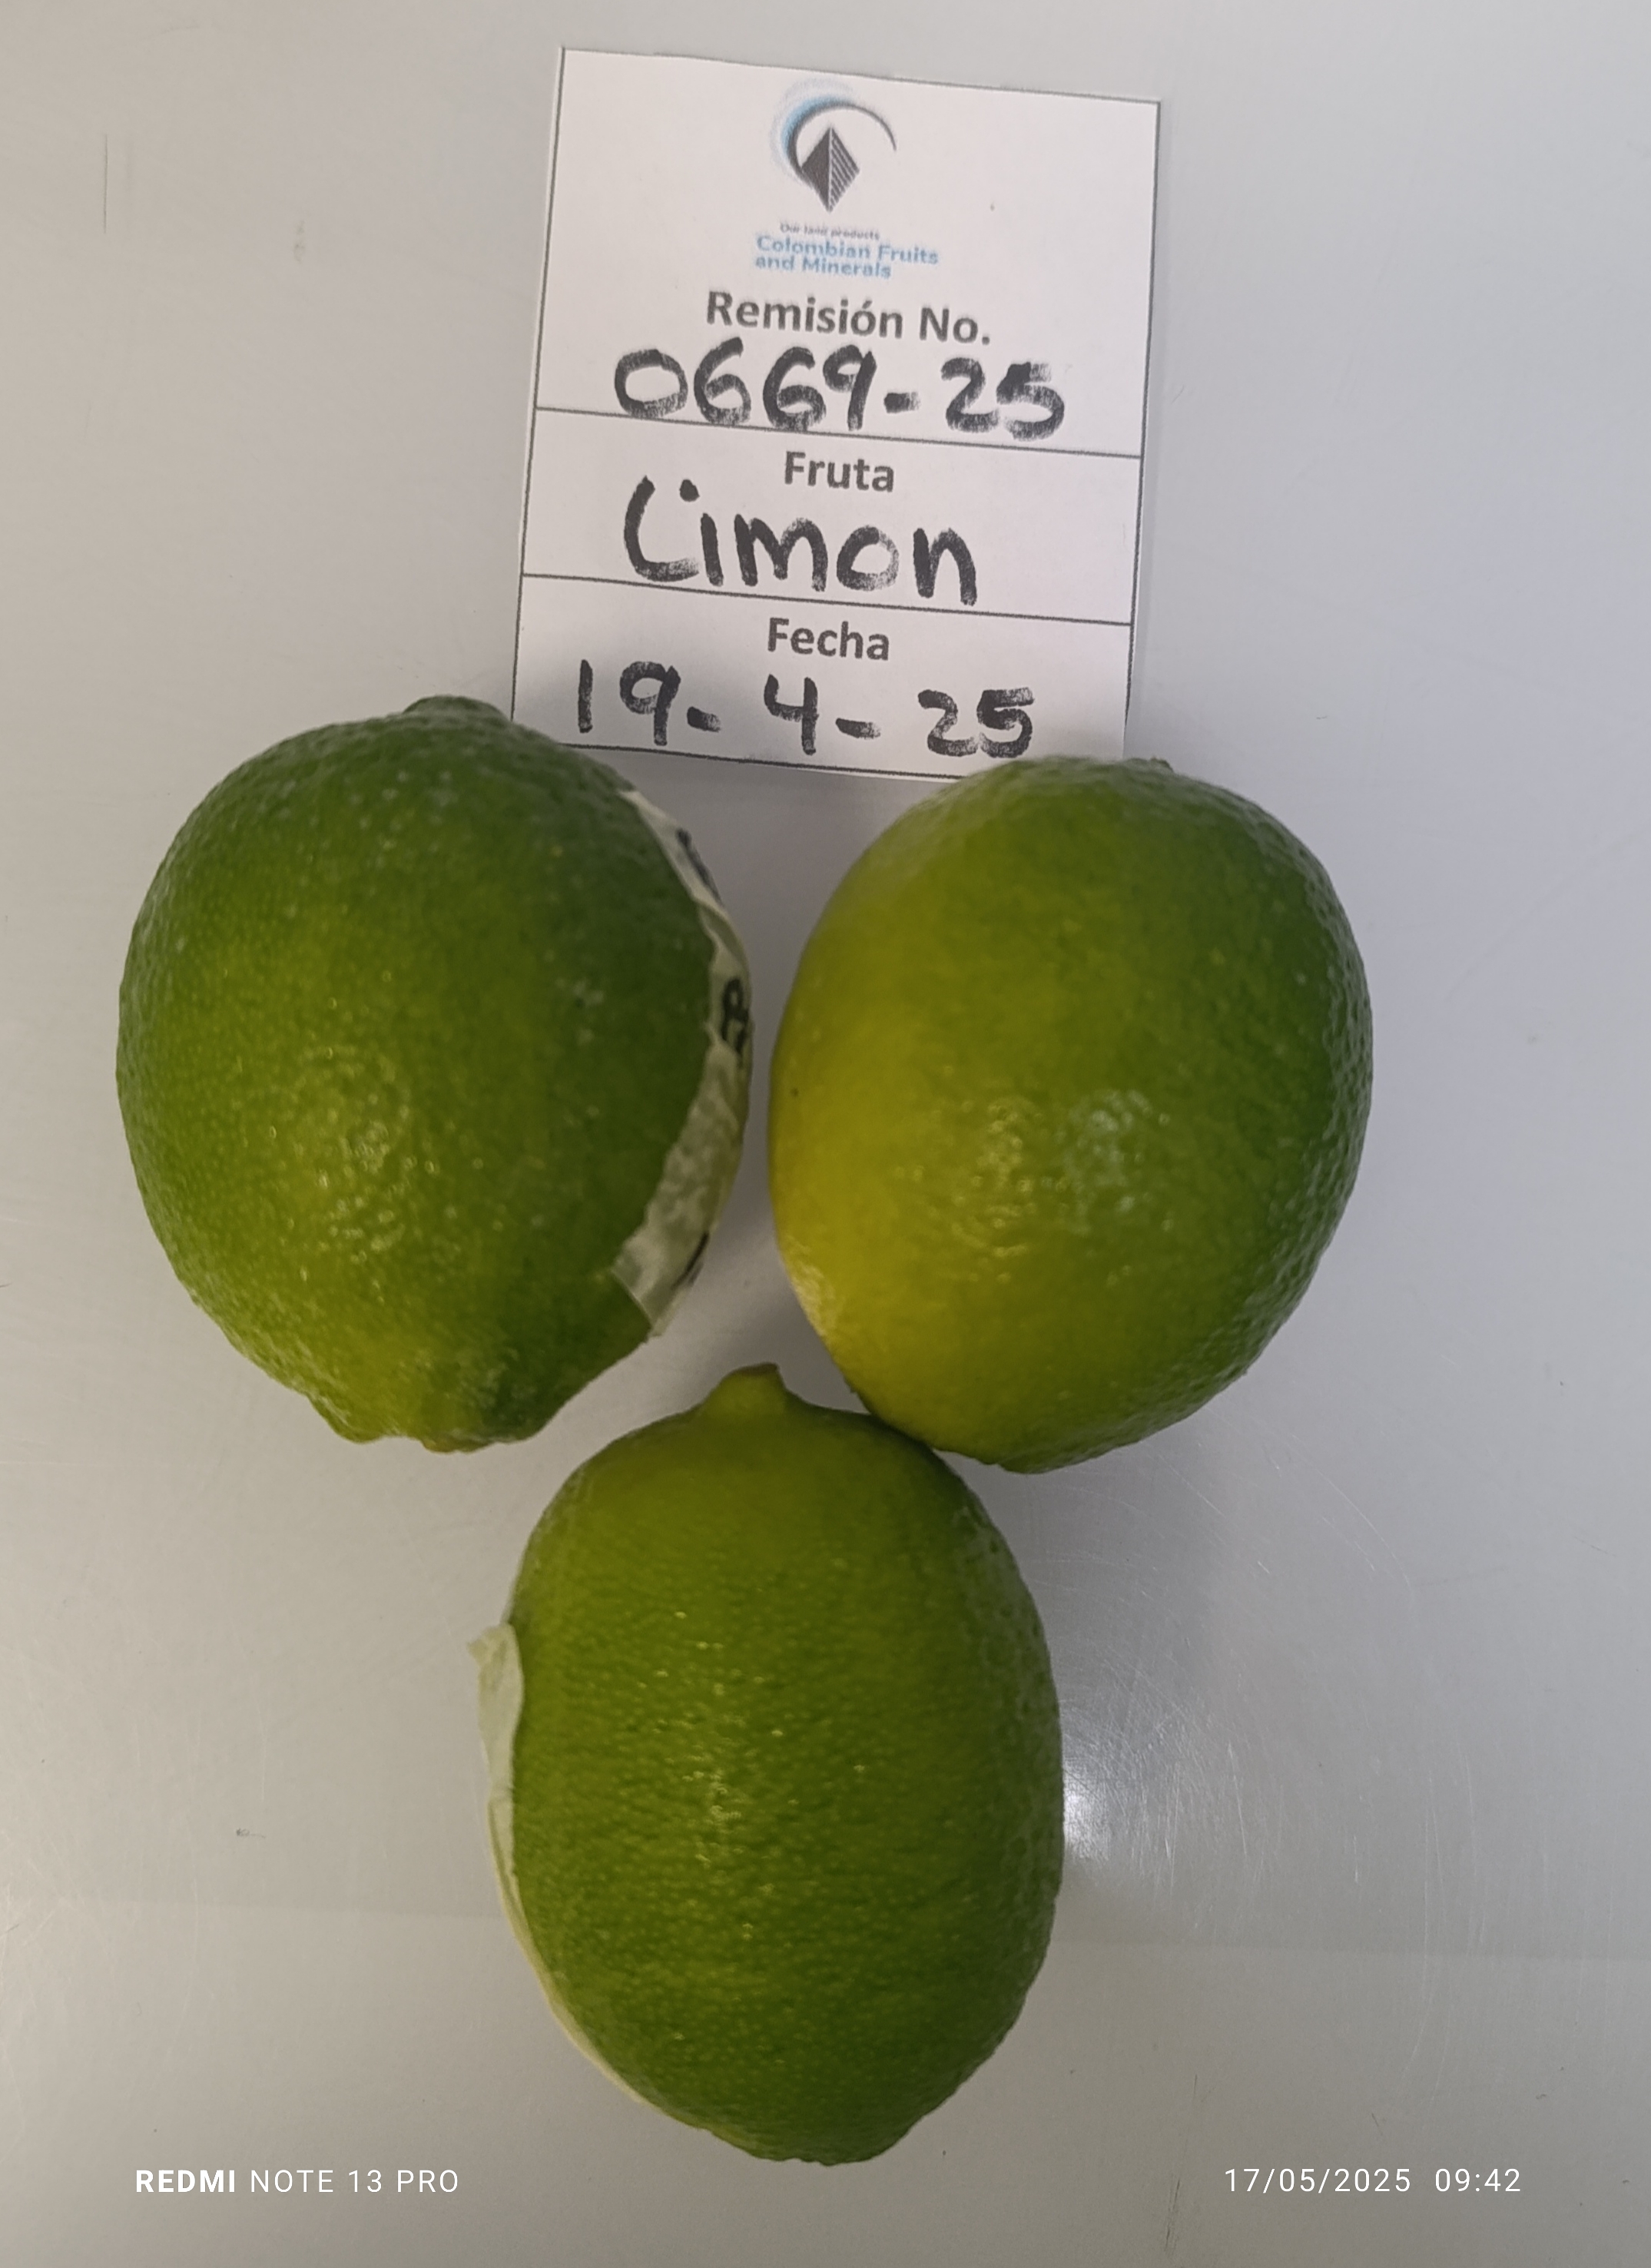 Our land products
Colombian Fruits
and Minerals
Remisión No.
0669-25
Fruta
Limon
Fecha
19-4-25
REDMI NOTE 13 PRO
17/05/2025 09:42